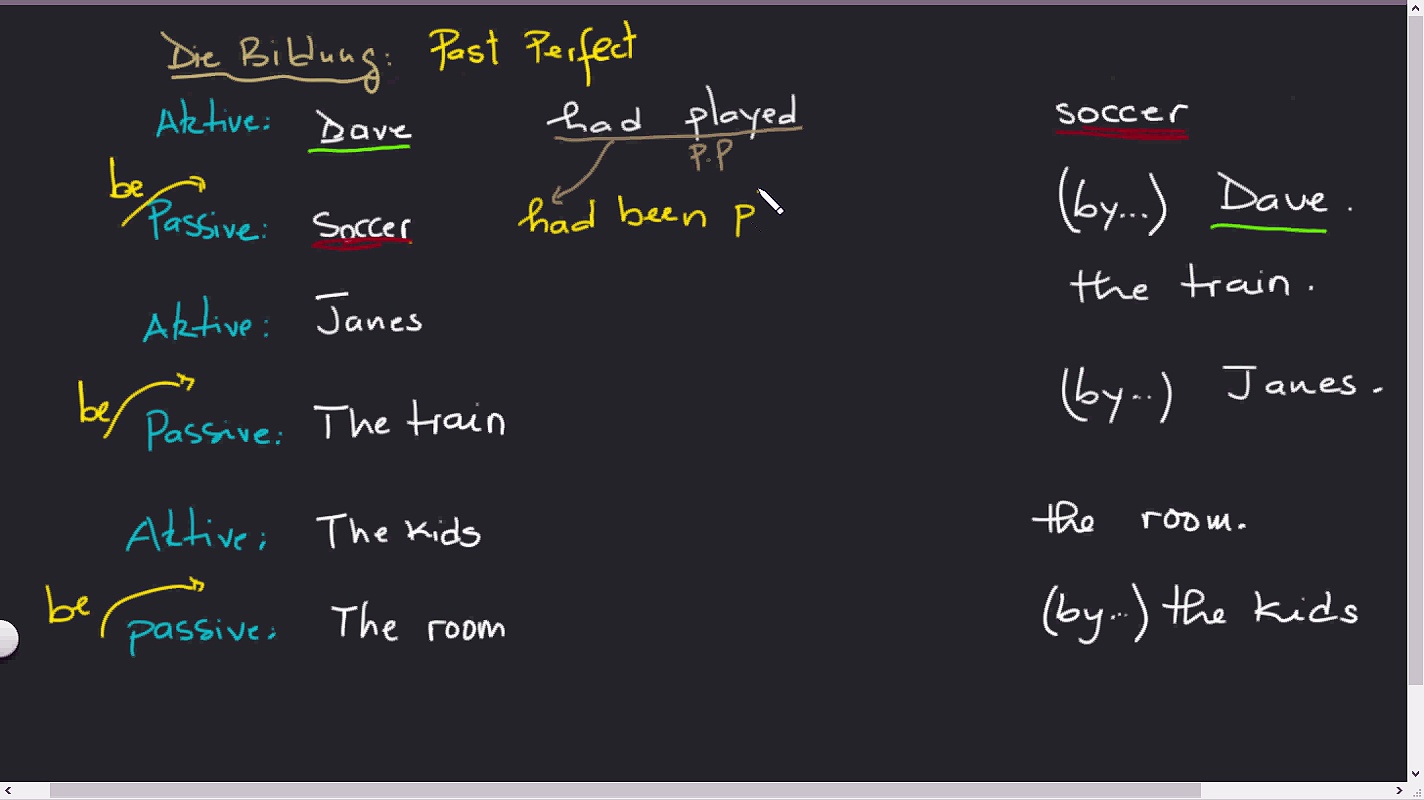 Die Bildung: Past Perfect
Aktive: Dave had played soccer
P.P
be
Passive: Soccer had been p (by...) Dave.
Aktive: Janes the train.
be
Passive: The train (by..) Janes.
Aktive: The kids the room.
be
passive: The room (by..) the kids